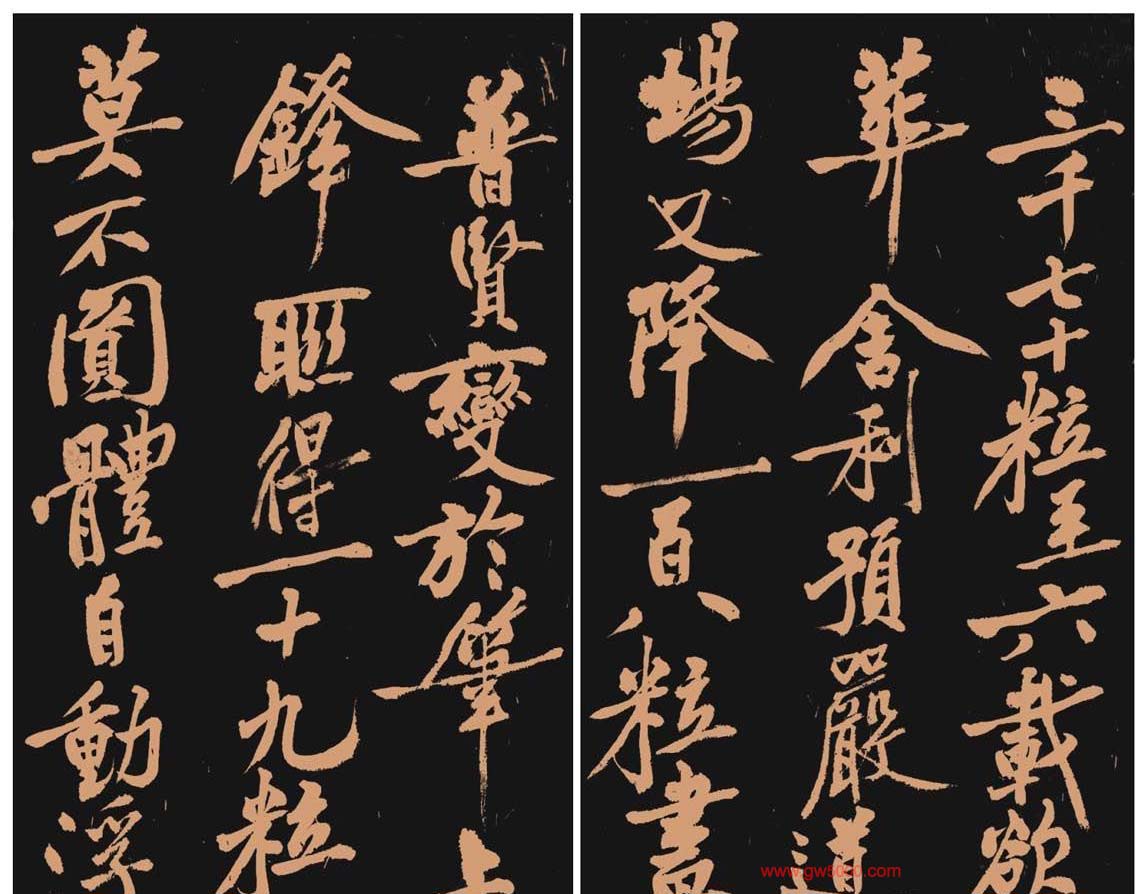 三千七十粒至六載欲
葬舍利預嚴道
場又降一百八粒畫
普賢變於筆上
鋒聯得一十九粒
莫不圓體自動浮